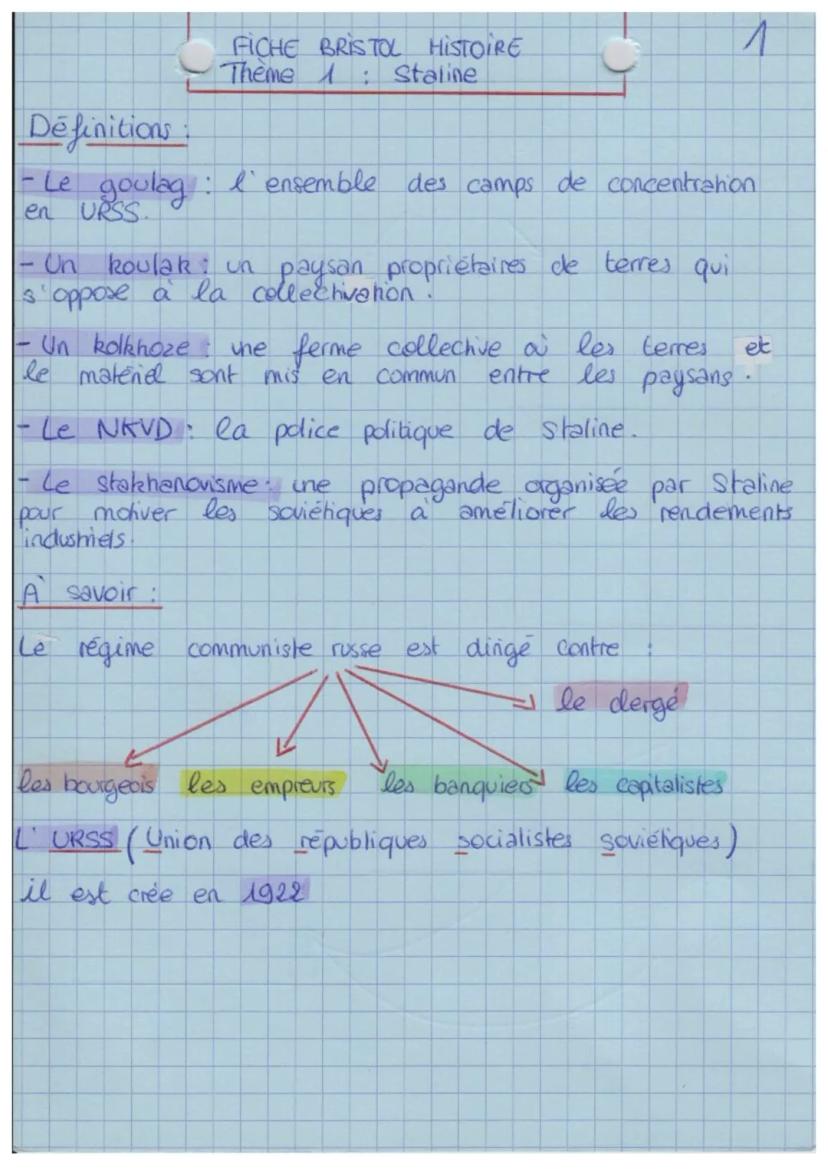 FICHE BRISTOL HISTOIRE
1
Thème 1 : Staline
Définitions :
- Le goulag : l'ensemble des camps de concentration
en URSS.
- Un koulak : un paysan propriétaires de terres qui
s'oppose à la collectivation.
- Un kolkhoze : une ferme collective où les terres et
le matériel sont mis en commun entre les paysans.
- Le NKVD : la police politique de Staline.
- Le stakhenovisme : une propagande organisée par Staline
pour motiver les soviétiques à améliorer les rendements
industriels.
À savoir :
Le régime communiste russe est dirigé contre :
le clergé
les bourgeois les empreurs les banquiers les capitalistes
L'URSS (Union des républiques socialistes soviétiques)
il est crée en 1922